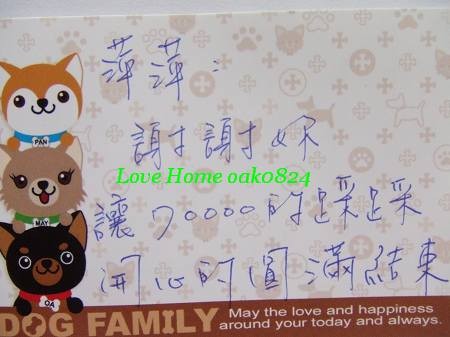 萍萍：
謝謝妳
Love Home oak0824
讓70000的踩踩
開心的圓滿結束
PAN
MAY
OA
DOG FAMILY
May the love and happiness
around your today and always.